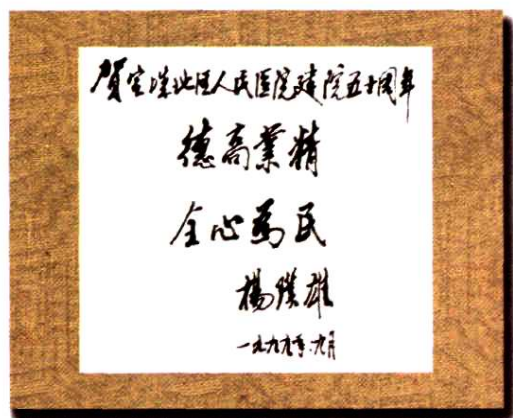 賀地区人民医院建院五十周年
德高業精
全心爲民
楊雄
一九九九年.九月